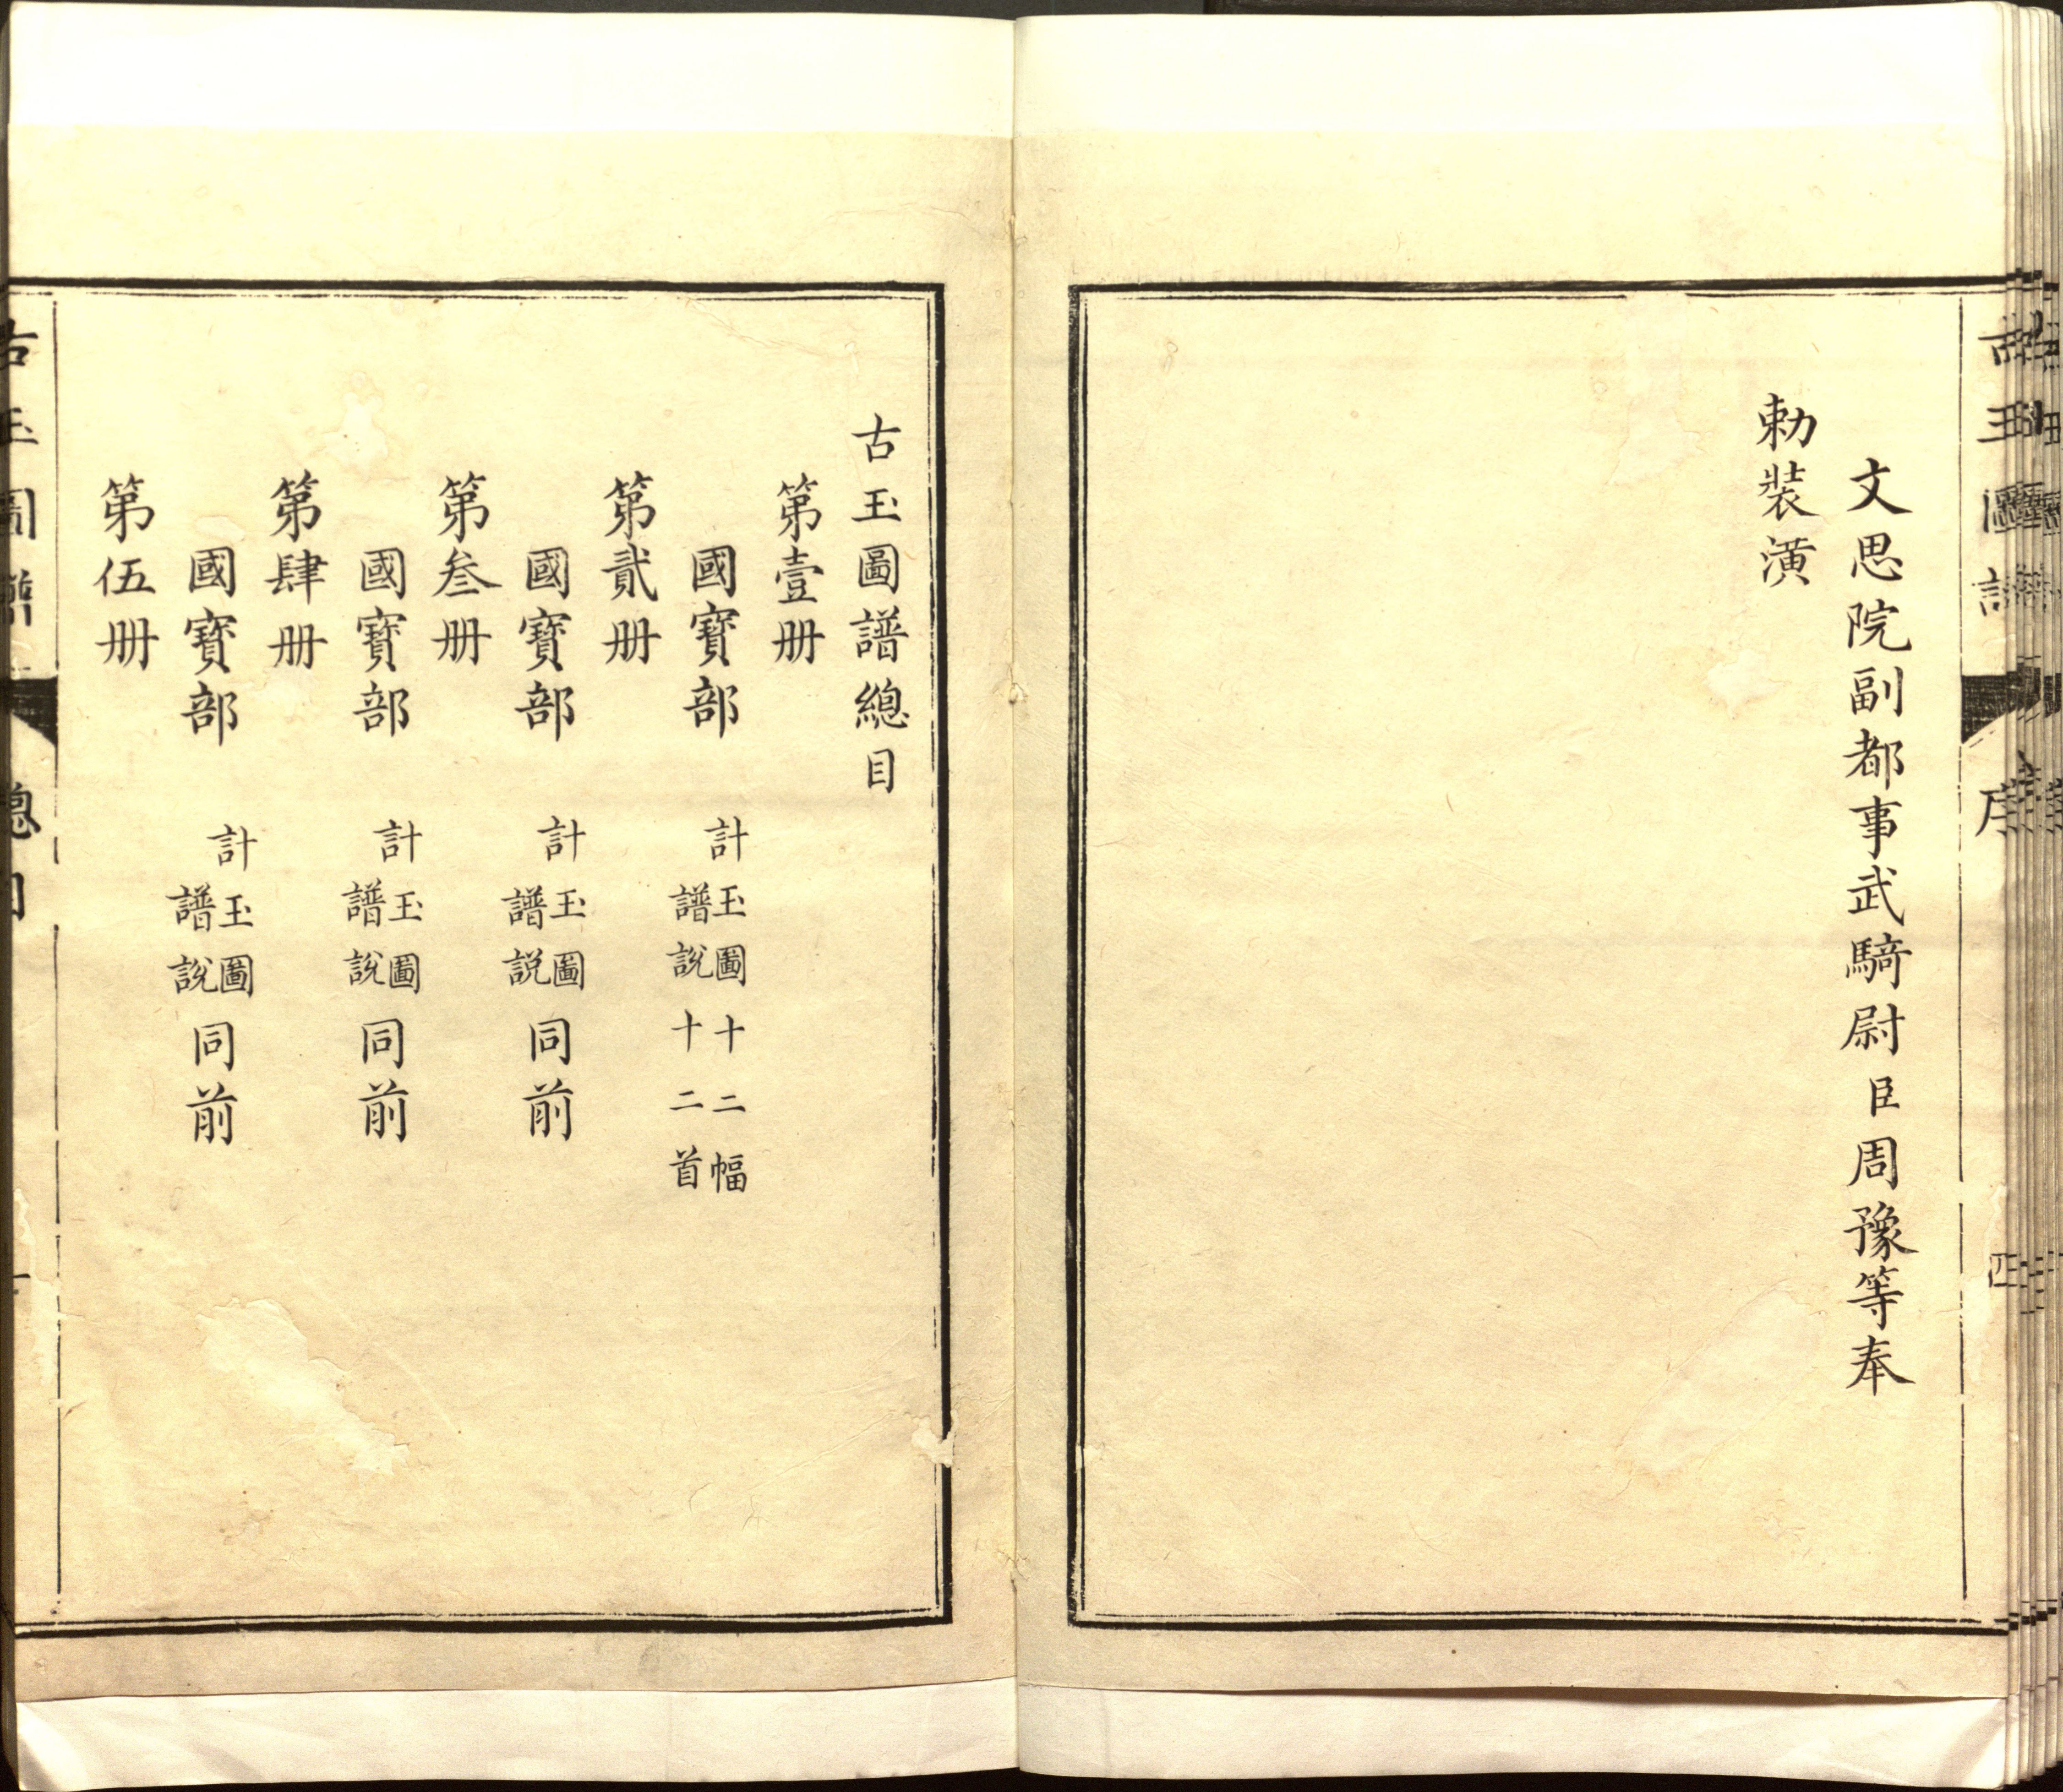 文思院副都事武騎尉臣周豫等奉
勅裝潢
古玉圖譜總目
第壹册
國寶部 計玉圖十二幅
譜說十二首
第貳册
國寶部 計玉圖譜說同前
第叁册
國寶部 計玉圖譜說同前
第肆册
國寶部 計玉圖譜說同前
第伍册
古玉圖譜 總目